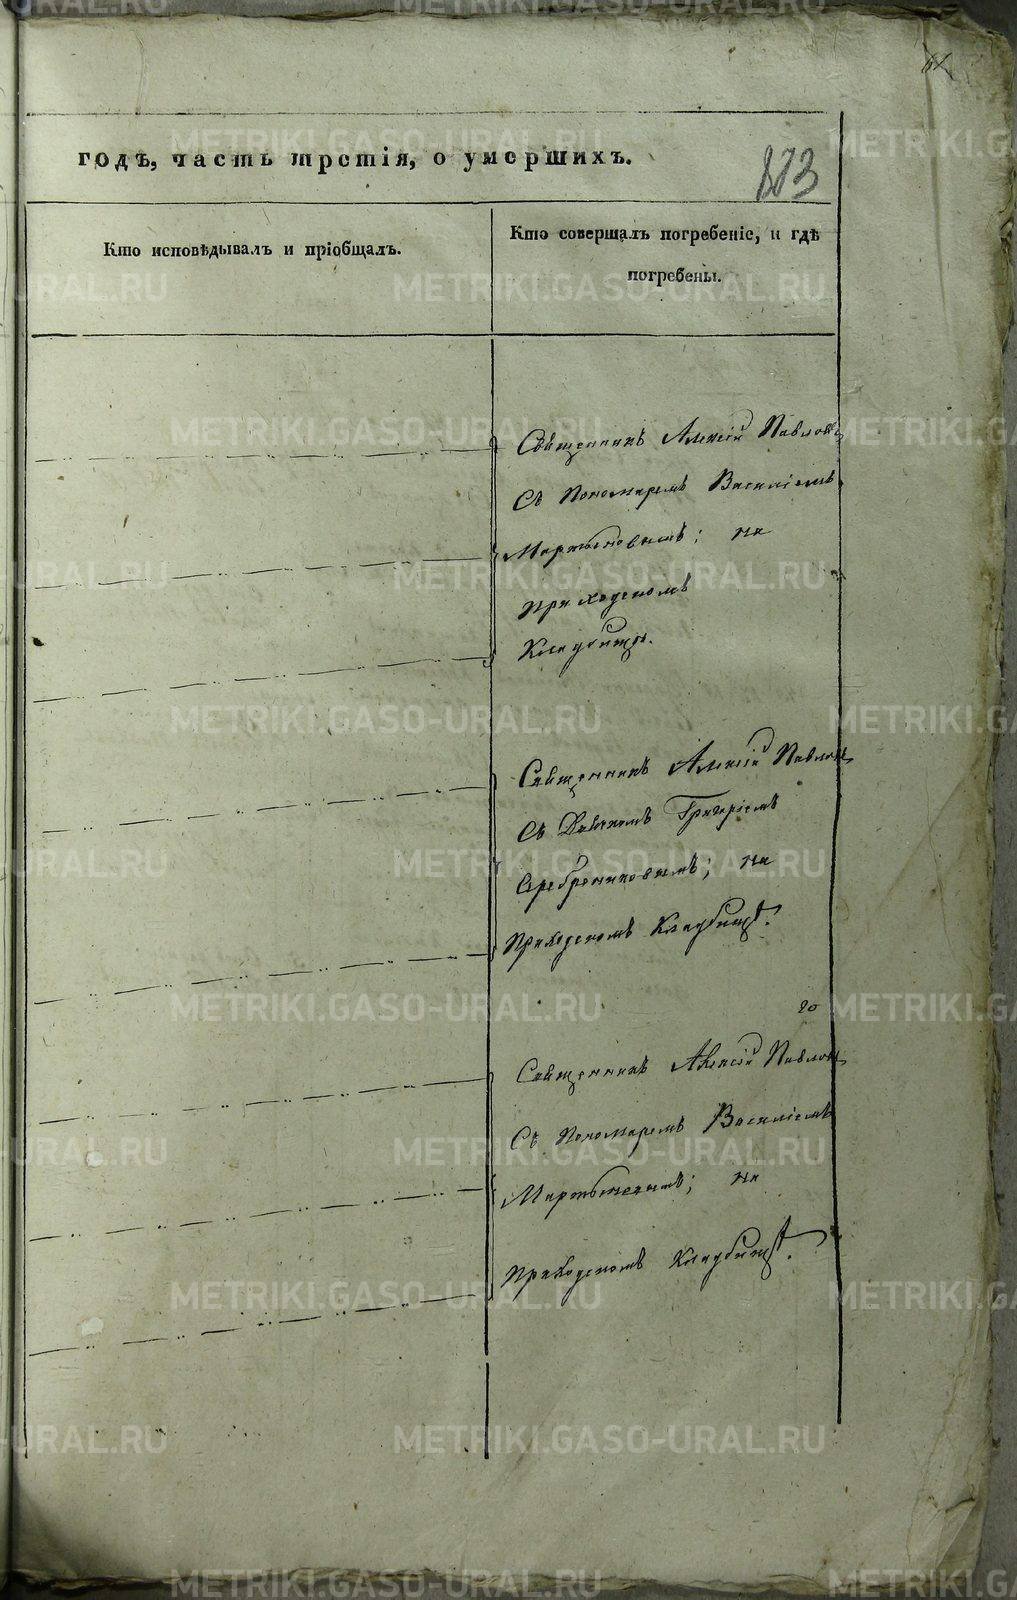 годъ, часть третія, о умершихъ.
Кто исповѣдывалъ и пріобщалъ.
Кто совершалъ погребеніе, и гдѣ
погребены.
Священникъ Алексій Павловъ
Съ Пономаремъ Василіемъ
Мартыновымъ; на
приходскомъ
Кладбищѣ.
Священникъ Алексій Павловъ
Съ Дьякомъ Григоріемъ
Серебрениковымъ; на
Приходскомъ Кладбищѣ.
Священникъ Алексій Павловъ
Съ Пономаремъ Василіемъ
Мартыновымъ; на
Приходскомъ Кладбищѣ.
METRIKI.GASO-URAL.RU